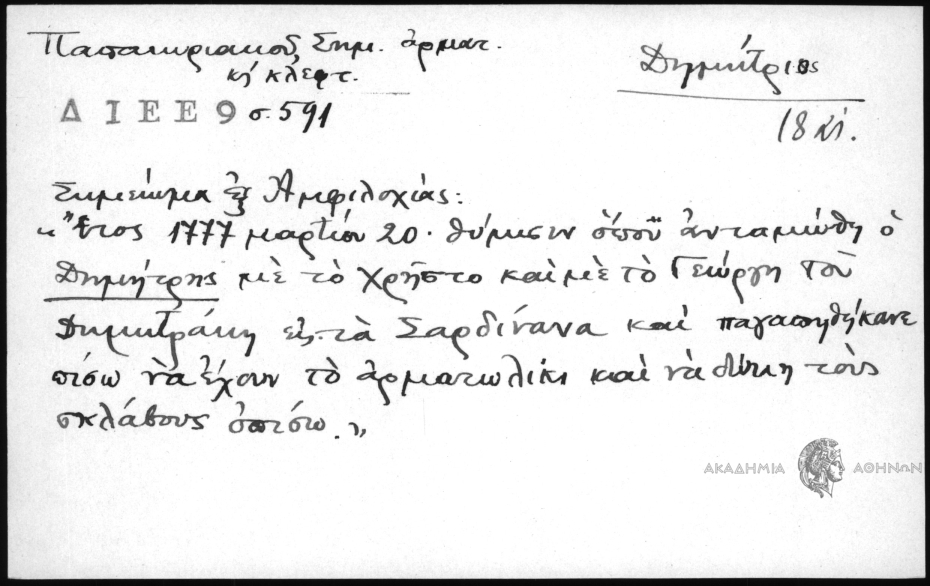 Παπακυριακοῦ Σημ. ἁρματ.
κὴ κλεφτ.
Δημήτριος
ΔΙΕΕ 9 σ. 591
18 αἰ.
Σημείωμα ἐξ Ἀμφιλοχίας:
«Ἔτος 1777 μαρτίου 20. θύμισιν ὁποῦ ἀνταμώθη ὁ
Δημήτρης μὲ τὸ Χρῆστο καὶ μὲ τὸ Γεώργη τοῦ
Δημητράκη εἰς τὰ Σαρδίνανα καὶ παγαπηθήκανε
πίσω νὰ ἔχουν τὸ ἀρματωλίκι καὶ νὰ δίνη τοὺς
σκλάβους ὀπίσω.»
ΑΚΑΔΗΜΙΑ ΑΘΗΝΩΝ